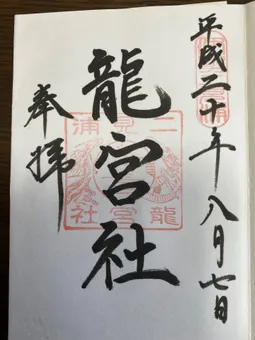 平成二十年八月七日
龍宮社
二見浦
龍宮社
奉拝